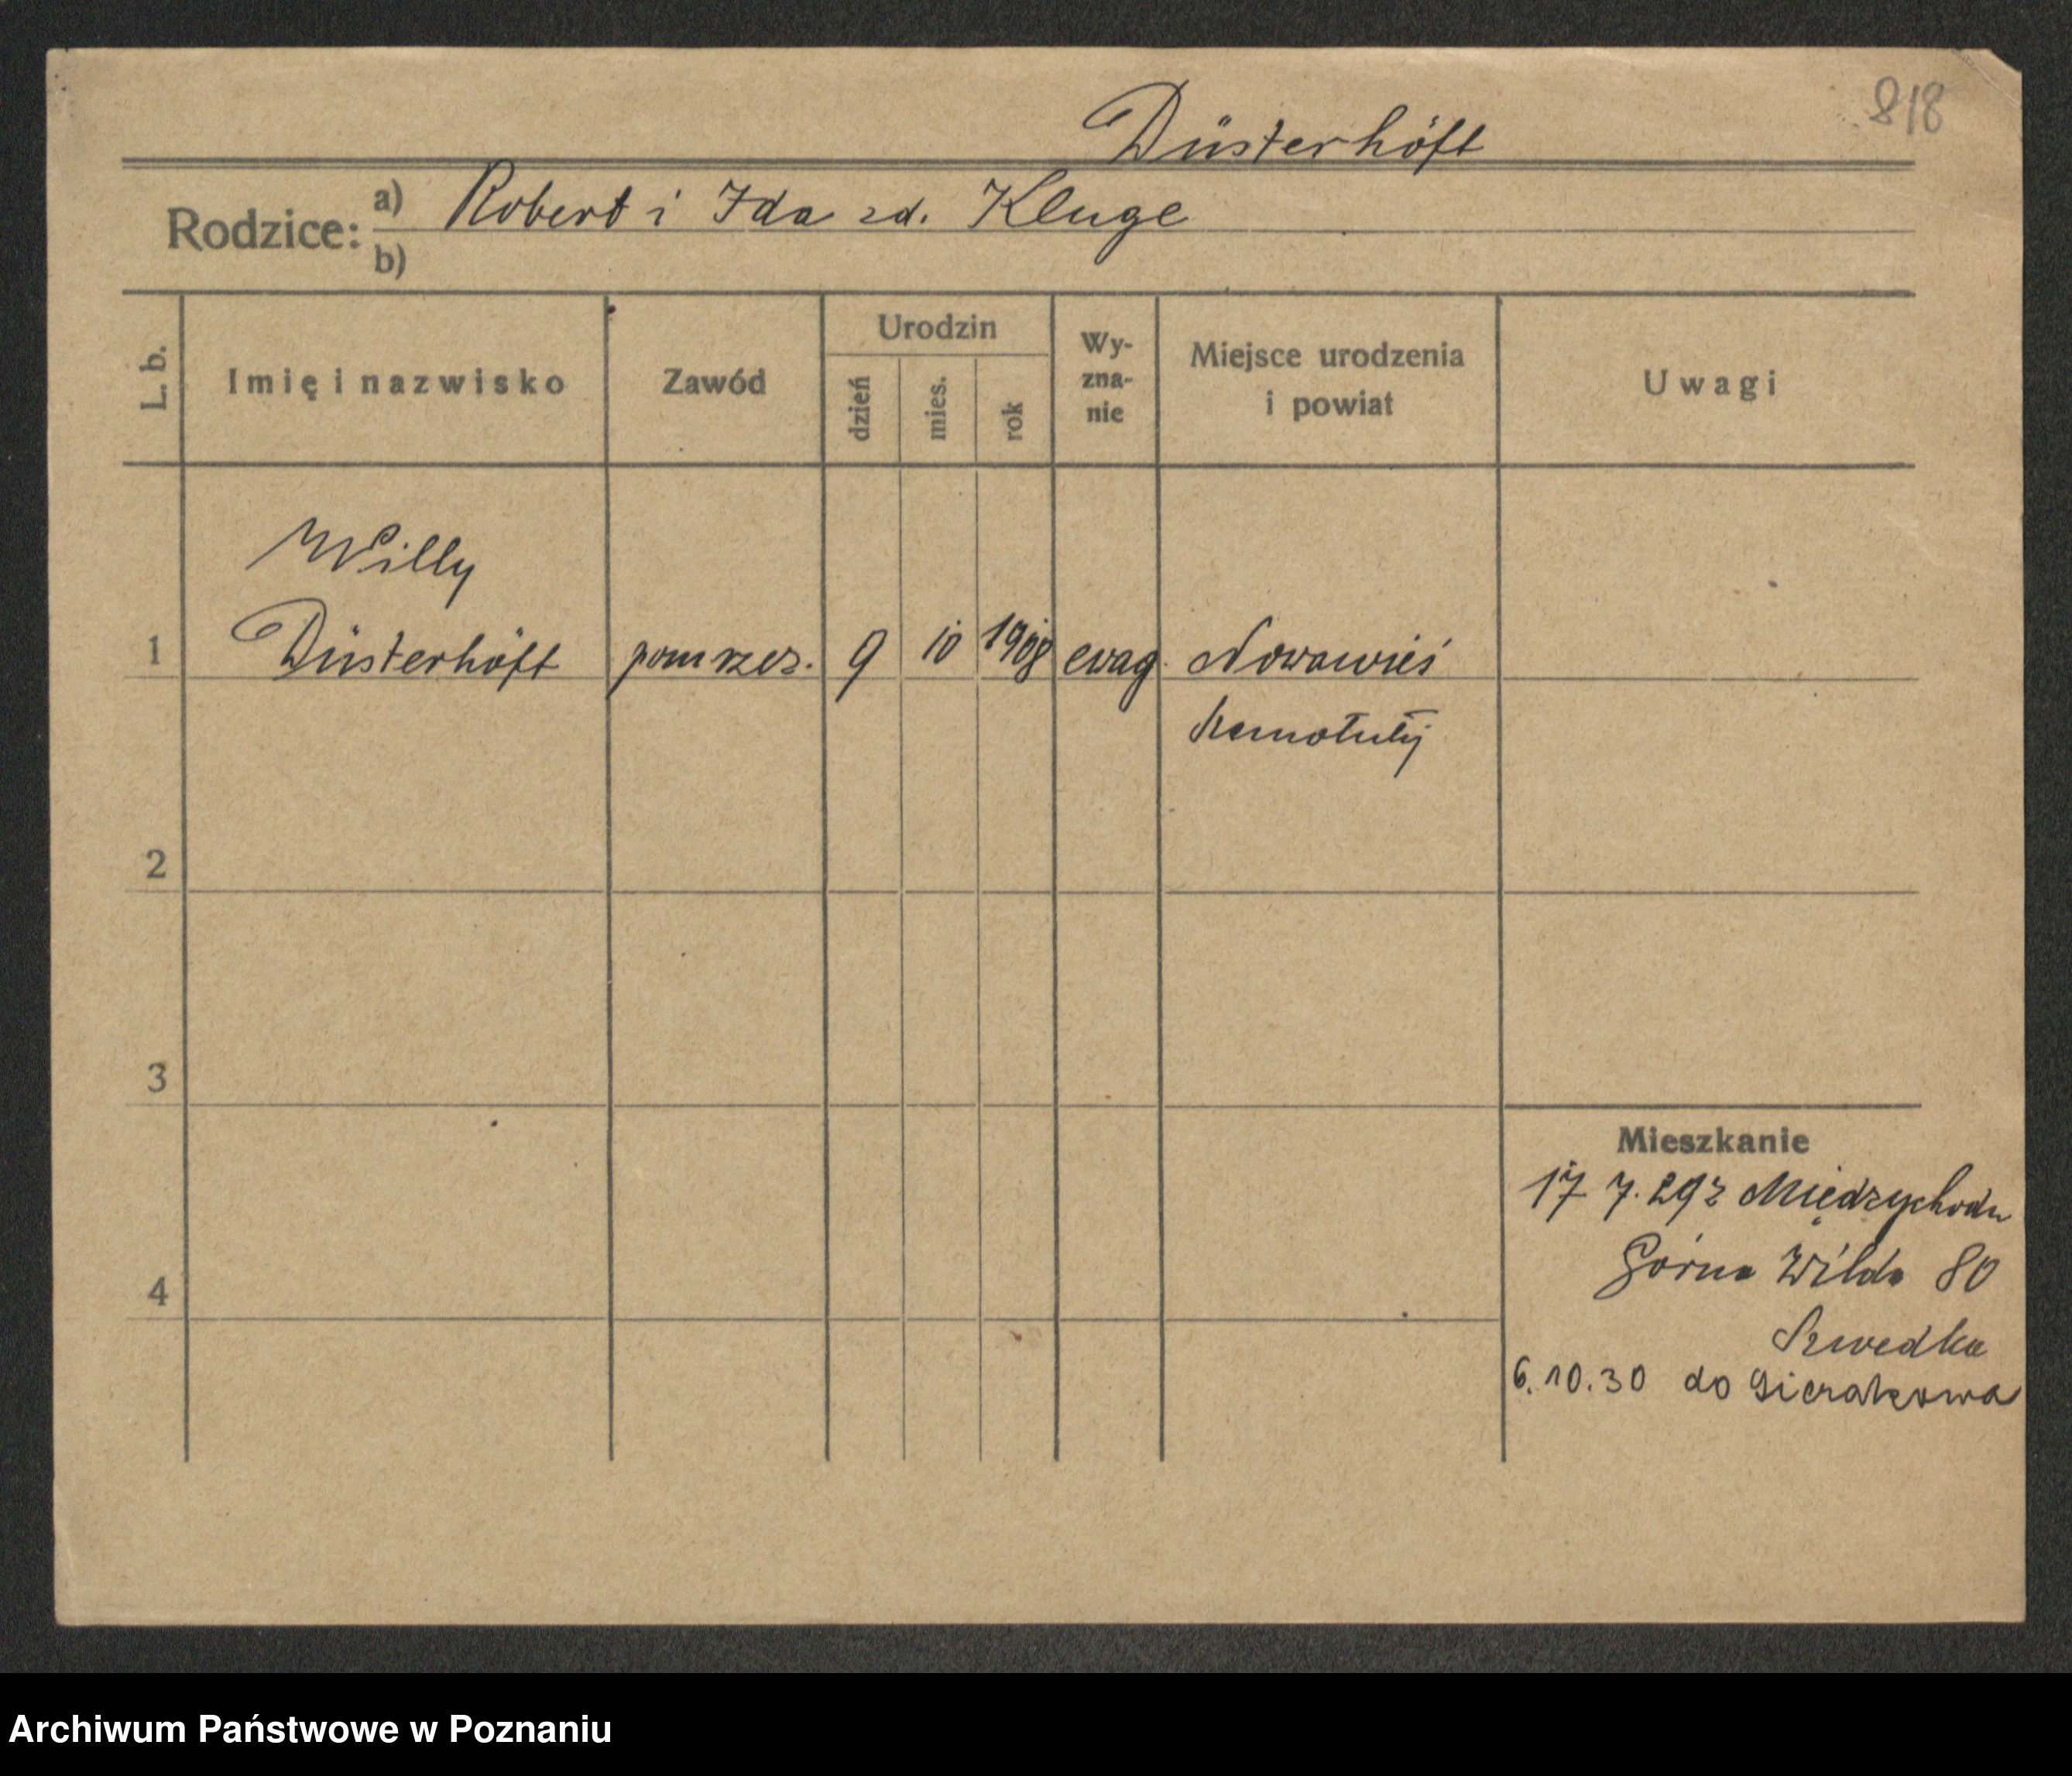 818
Düsterhöft
Rodzice: a) Robert i Ida zd. Kluge
b)
L. b. Imię i nazwisko Zawód Urodzin dzień mies. rok Wy-zna-nie Miejsce urodzenia i powiat Uwagi
Willy
1 Düsterhöft pom rzez. 9 10 1908 ewag. Nowawieś
Szamotuły
2
3
Mieszkanie
17 7. 29 z Międzychodu
4 Górna Wilda 80
Szwedka
6.10.30 do Sierakowa
Archiwum Państwowe w Poznaniu